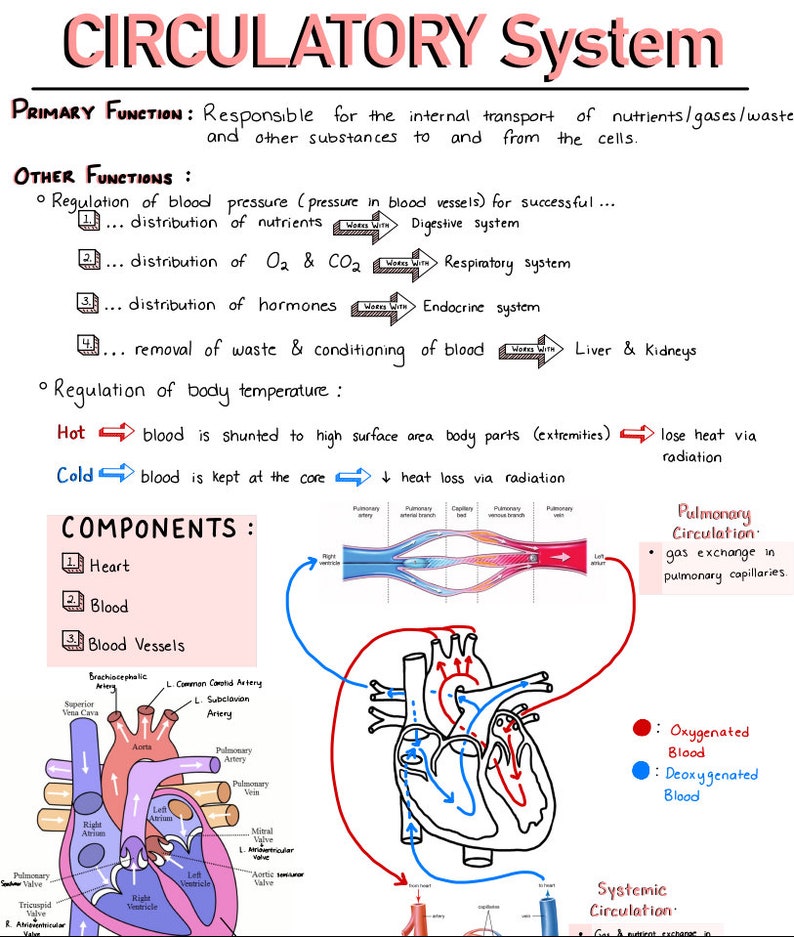 CIRCULATORY System
PRIMARY FUNCTION: Responsible for the internal transport of nutrients/gases/waste
and other substances to and from the cells.
OTHER FUNCTIONS:
Regulation of blood pressure (pressure in blood vessels) for successful...
1. ... distribution of nutrients WORKS WITH Digestive system
2. ... distribution of O2 & CO2 WORKS WITH Respiratory system
3. ... distribution of hormones WORKS WITH Endocrine system
4. ... removal of waste & conditioning of blood WORKS WITH Liver & Kidneys
Regulation of body temperature:
Hot ⇒ blood is shunted to high surface area body parts (extremities) ⇒ lose heat via
radiation
Cold ⇒ blood is kept at the core ⇒ ↓ heat loss via radiation
COMPONENTS:
1. Heart
2. Blood
3. Blood Vessels
Pulmonary artery
Pulmonary arterial branch
Capillary bed
Pulmonary venous branch
Pulmonary vein
Right ventricle
Left atrium
Pulmonary
Circulation
• gas exchange in
pulmonary capillaries.
Brachiocephalic
Artery
L. Common Carotid Artery
L. Subclavian
Artery
Superior
Vena Cava
Aorta
Pulmonary
Artery
Pulmonary
Vein
Left
Atrium
Right
Atrium
Mitral
Valve
L. Atrioventricular
Valve
Aortic semilunar
Valve
Left
Ventricle
Right
Ventricle
Pulmonary
Semilunar Valve
Tricuspid
Valve
R. Atrioventricular
Valve
: Oxygenated
Blood
: Deoxygenated
Blood
from heart
to heart
artery
capillaries
vein
Systemic
Circulation
• Gas & nutrient exchange in